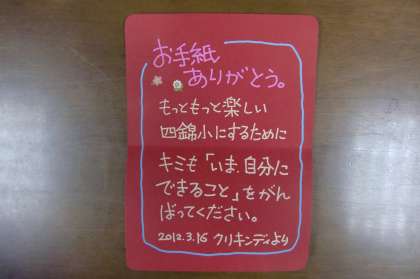 お手紙
ありがとう。
もっともっと楽しい
四錦小にするために
キミも「いま、自分に
できること」をがん
ばってください。
2012.3.16 クリキンディより